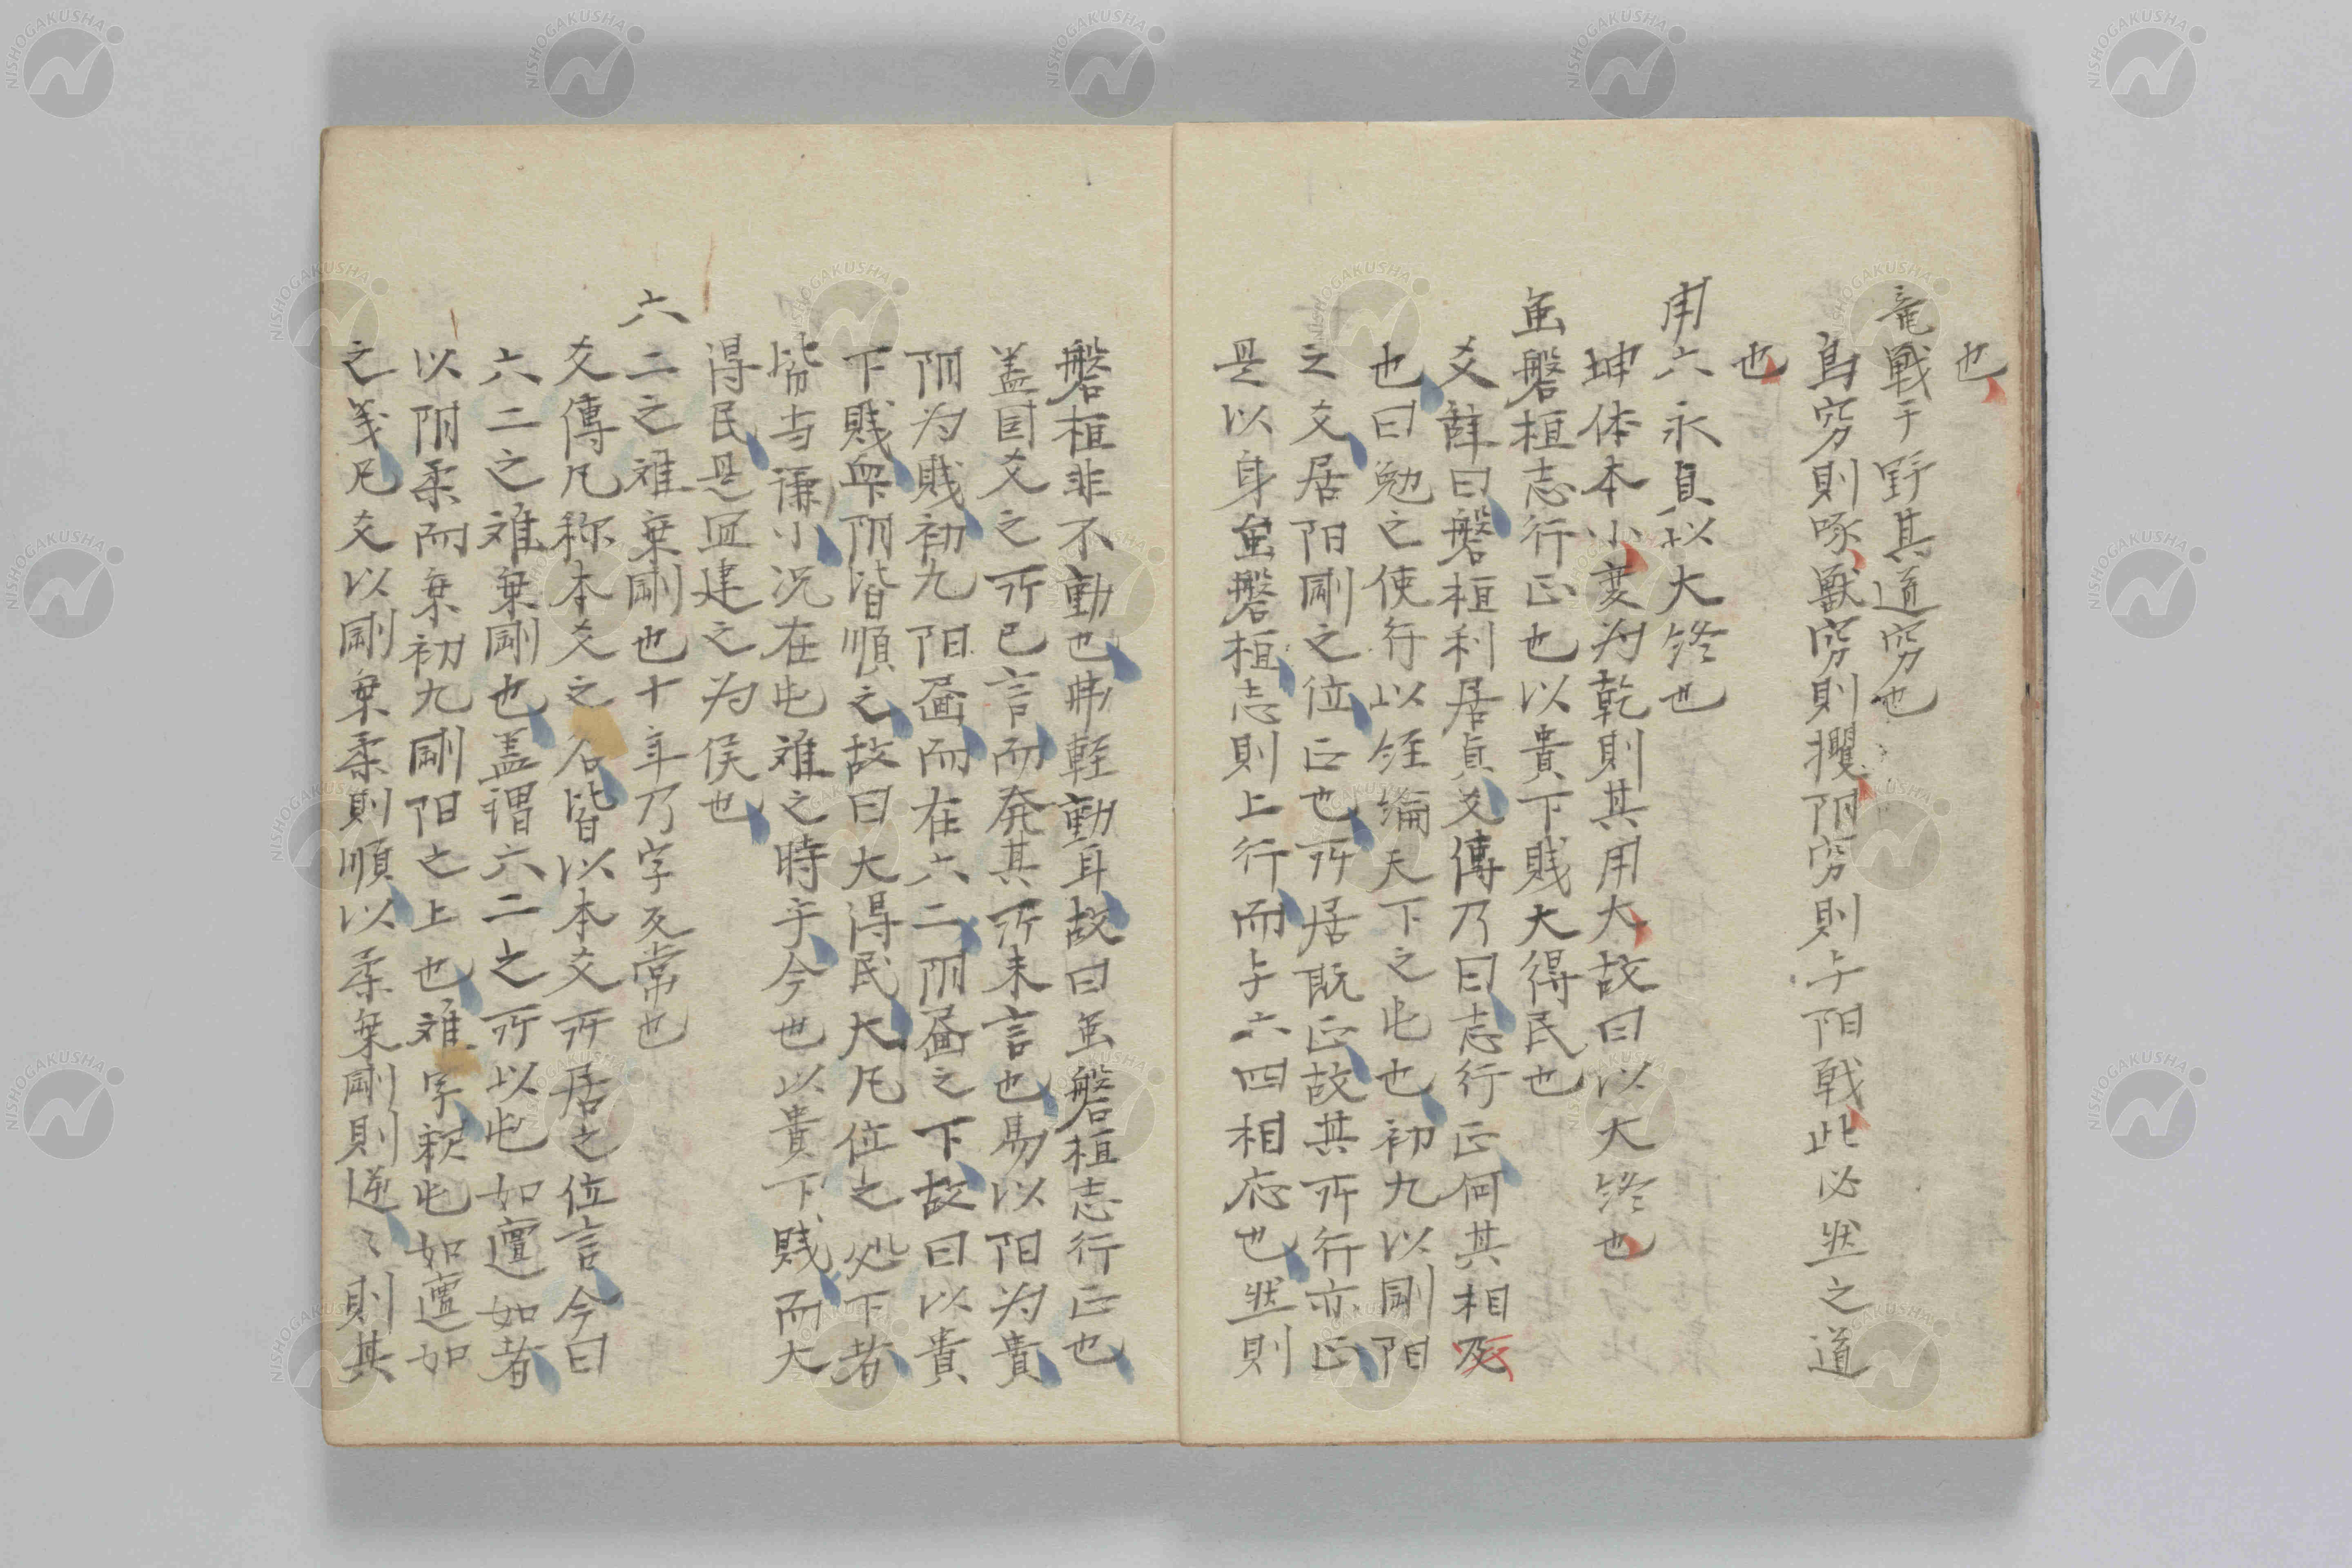 也
竜戦于野其道窮也
鳥窮則啄獣窮則攫阴窮則与阳戦此必然之道
也
用六永貞以大終也
坤体本小変为乾則其用大故曰以大終也
虽磐桓志行正也以貴下賎大得民也
爻辞曰磐桓利居貞爻傳乃曰志行正何其相反
也曰勉之使行以経綸天下之屯也初九以剛阳
之爻居阳剛之位正也所居既正故其所行亦正
是以身虽磐桓志則上行而与六四相応也然則
磐桓非不動也弗軽動耳故曰虽磐桓志行正也
盖因爻之所已言而発其所未言也易以阳为貴
阴为賎初九阳畫而在六二阴畫之下故曰以貴
下賎衆阴皆順之故曰大得民大凡位之処下者
皆与謙小况在屯难之時乎今也以貴下賎而大
得民是宜建之为侯也
六二之难乗剛也十年乃字反常也
爻傳凡称本爻之名皆以本爻所居之位言今曰
六二之难乗剛也盖謂六二之所以屯如邅如者
以阴柔而乗初九剛阳之上也难字釈屯如邅如
之義凡爻以剛乗柔則順以柔乗剛則逆〻則其